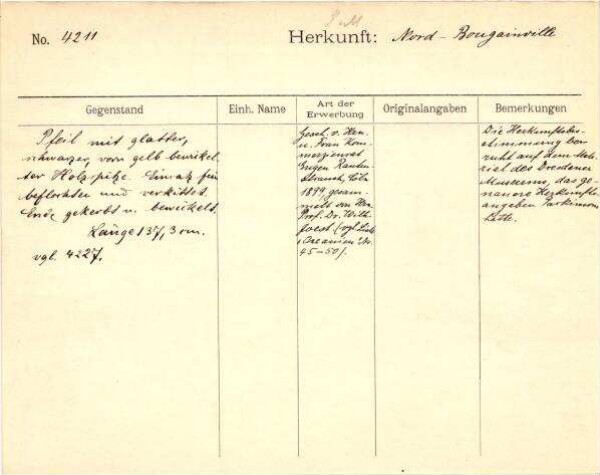 No. 4211
Herkunft: Nord-Bougainville
Gegenstand
Einh. Name
Art der Erwerbung
Originalangaben
Bemerkungen
Pfeil mit glatter,
schwarzer, vorn gelb bewickel-
ter Holzspitze. Einsatz fein
beflochten und verkittet.
Ende gekerbt u. bewickelt.
Länge 137,3 cm.
vgl. 4227.
Gesch. v. Herrn
u. Frau Kom-
merzienrat
Eugen Rauten-
strauch, Cöln
1899 gesam-
melt von Herrn
Prof. Dr. Wilh.
Joest. (vgl. Liste
Oceanien Nr.
45-50).
Die Herkunftsbe-
stimmung be-
ruht auf dem Mate-
rial des Dresdener
Museums, das ge-
nauere Herkunfts-
angaben Parkinsons